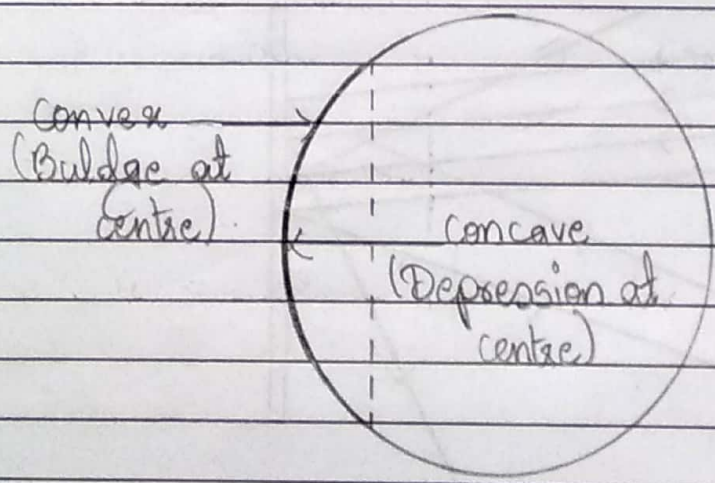 convex
(Buldge at
centre)
concave
(Depression at
centre)